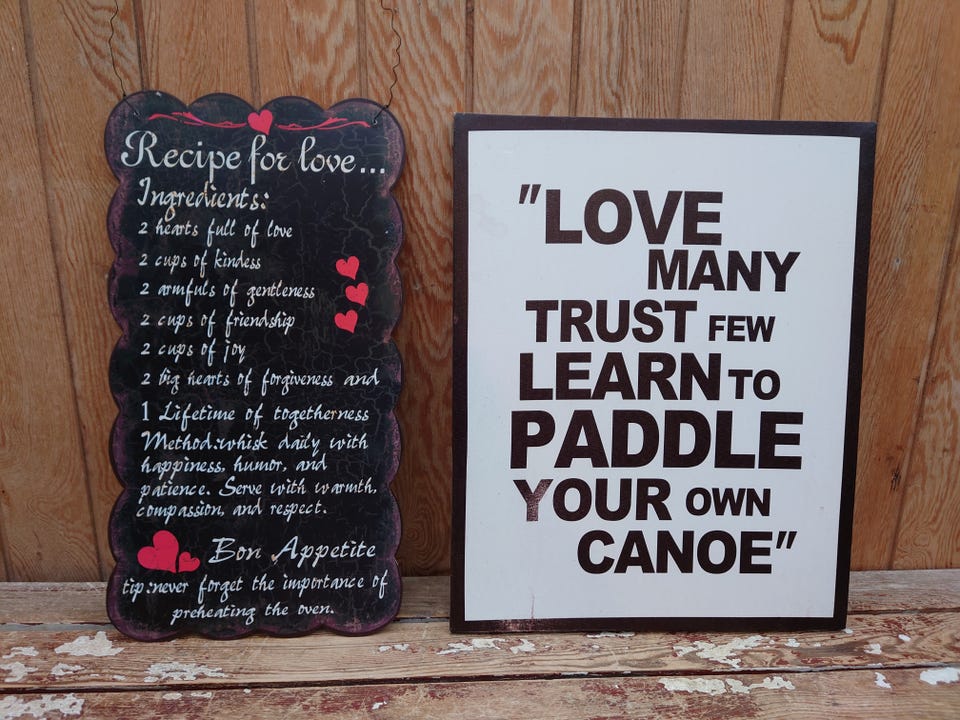 Recipe for love...
Ingredients:
2 hearts full of love
2 cups of kindess
2 armfuls of gentleness
2 cups of friendship
2 cups of joy
2 big hearts of forgiveness and
1 Lifetime of togetherness
Method:whisk daily with
happiness, humor, and
patience. Serve with warmth,
compassion, and respect.
Bon Appetite
tip:never forget the importance of
preheating the oven.
"LOVE
MANY
TRUST FEW
LEARN TO
PADDLE
YOUR OWN
CANOE"